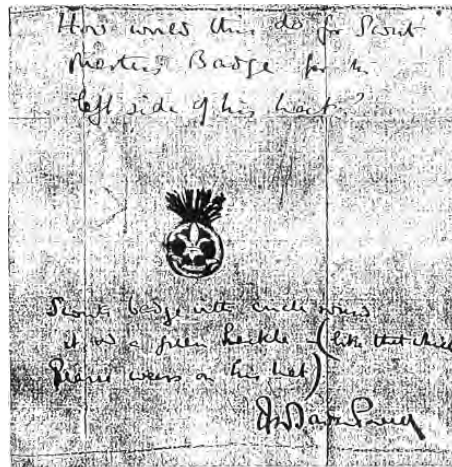 How would this do for Scout
Masters Badge for the
left side of his hat?
Scouts badge with circle round
it and a green hackle in (like that which
Pearse wears on his hat)